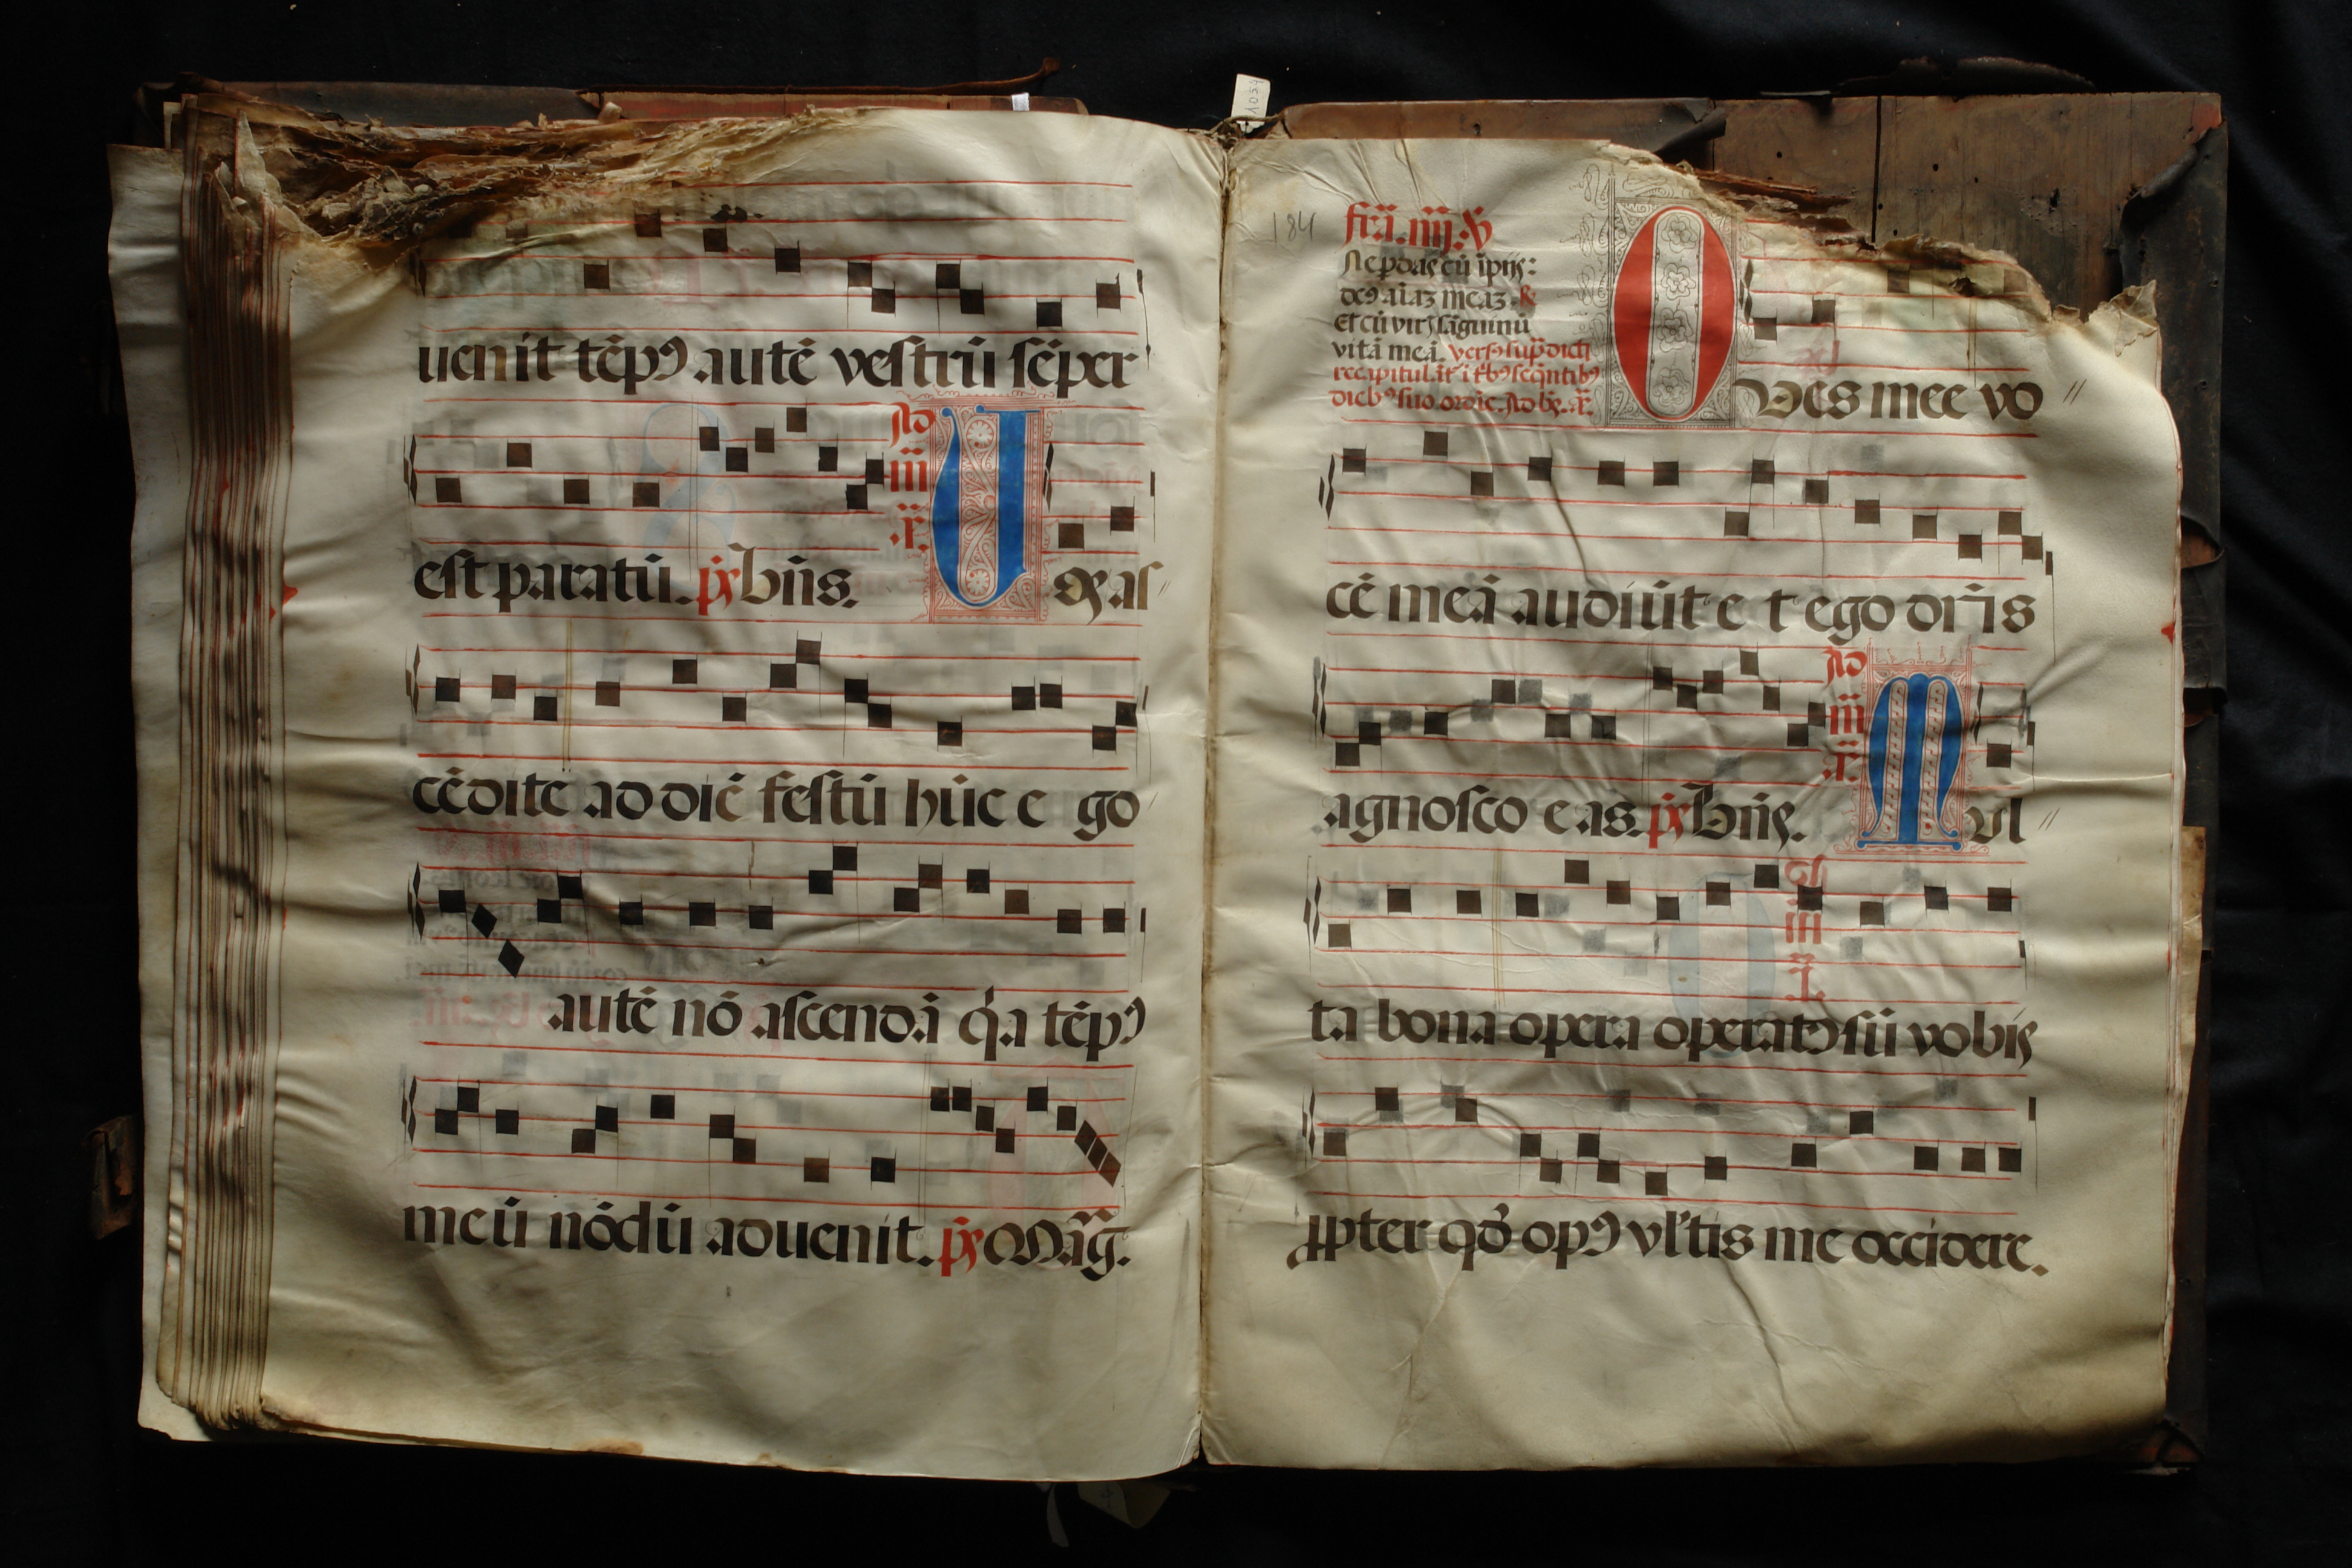 uenit tēpꝯ autē vestrū sēper
Ad
iii
.r̄.
est paratū. p̄s Bn̄s. Vos as
cēdite ad diē festū hūc e go
autē nō ascendā q̇a tēpꝯ
meū nōdū aduenit. p̄s Māg.
184
fr̄a. iiij. ℣
Ne p̄das cū īpijs:
deꝯ aīaz meaz. ℟
Et cū virꝭ sāguinū
vitā meā. versꝯ sup̄dicti
recapitulāt̄ ī t̄bꝯ seq̄ntibꝯ
diebꝯ suo ordīe. Ad bn̄. .r̄.
Oves mee vo
cē meā audiūt e t ego dn̄s
Ad
iii
.r̄.
agnosco eas. p̄s Bn̄s. Mul
ta bona opera operatꝯ sū vobis
ꝓpter qđ opꝯ vl'tis me occidere.